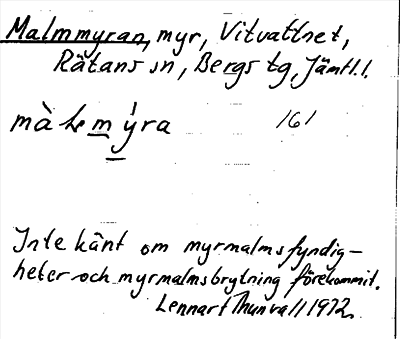 Malmmyran, myr, Vitvattnet,
Rätans sn, Bergs tg, Jämtl.l.
161
Inte känt om myrmalmsfyndig-
heter och myrmalmsbrytning förekommit.
Lennart Thunvall 1972.